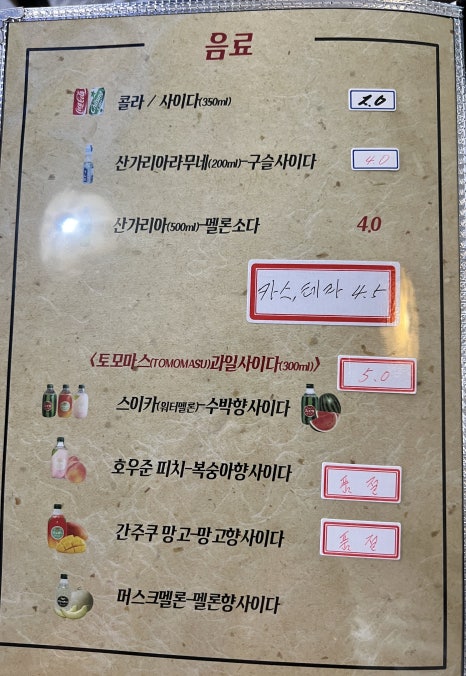 음료
콜라 / 사이다(350ml) 2.0
산가리아라무네(200ml)-구슬사이다 4.0
산가리아(500ml)-멜론소다 4.0
카스, 테라 4.5
<토모마스(TOMOMASU)과일사이다(300ml)> 5.0
스이카(워터멜론)-수박향사이다
호우준 피치-복숭아향사이다 품절
간주쿠 망고-망고향사이다 품절
머스크멜론-멜론향사이다